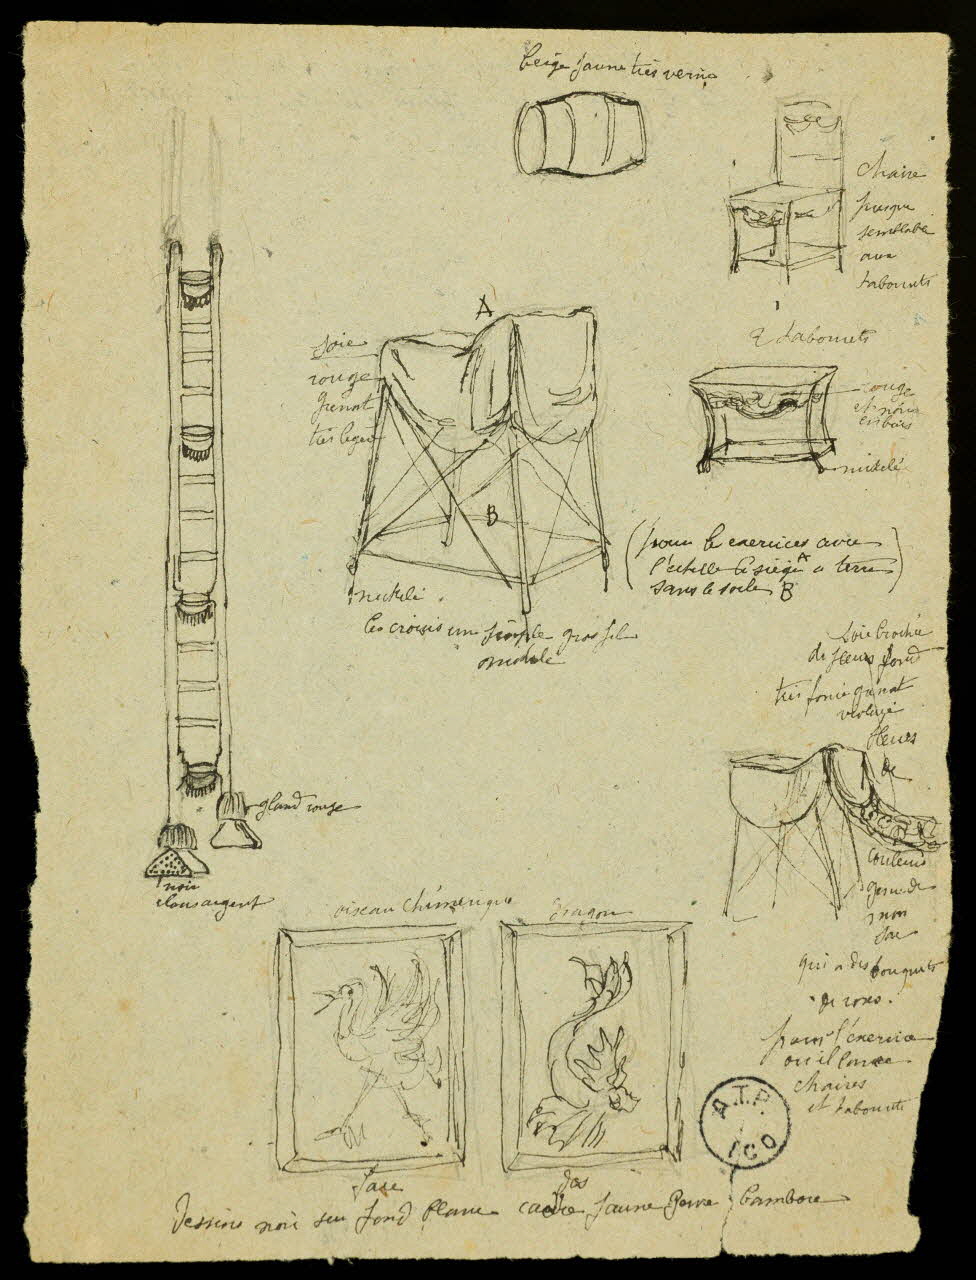 beige jaune très vernis
chaise
presque
semblable
aux
tabourets
2 tabourets
rouge
et noir
en bois
nickelé
A
soie
rouge
grenat
très léger
B
nickelé
les croisis un simple gros fil
nickelé
(pour le exercices avec
l'échelle le siège A a terre)
sans le socle B
soie brochée
de fleurs fond
très foncé grenat
violacé
fleurs
de
couleurs
genre de
mon
sac
qui a des bouquets
de roses.
pour l'exercice
où il lance
chaises
et tabourets
gland rouge
noir
clous argent
oiseau chimérique
dragon
face
dos
Dessins noir sur fond blanc cadre jaune genre bambou
A.T.P.
ICO